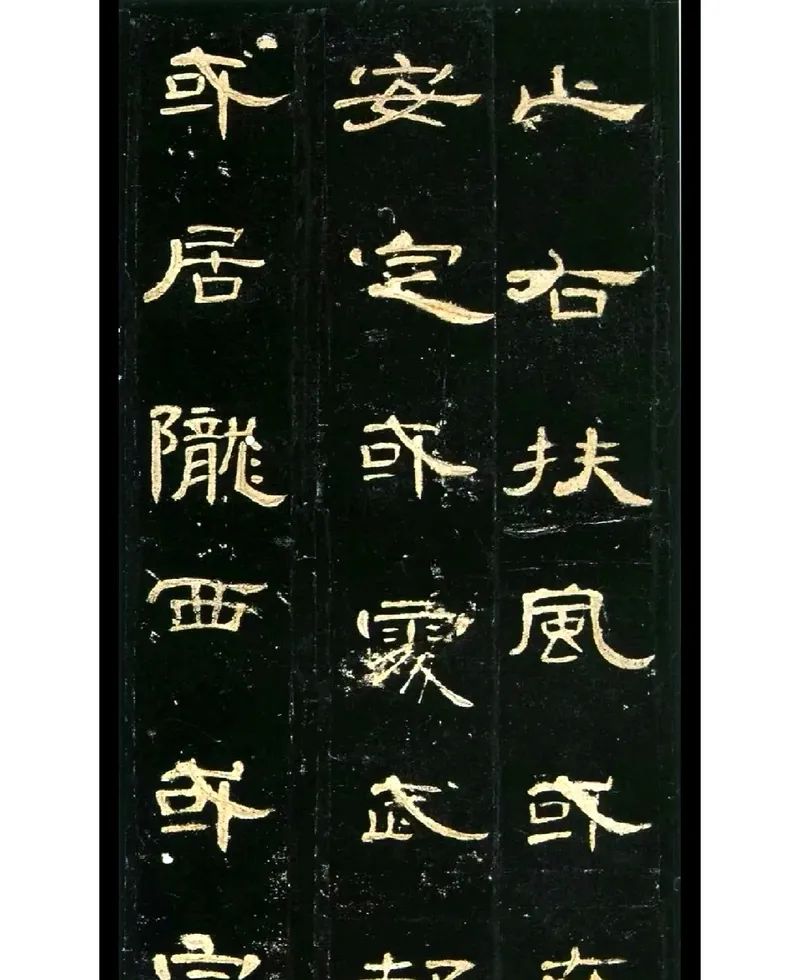 止右扶風或
安定或處武
或居隴西或